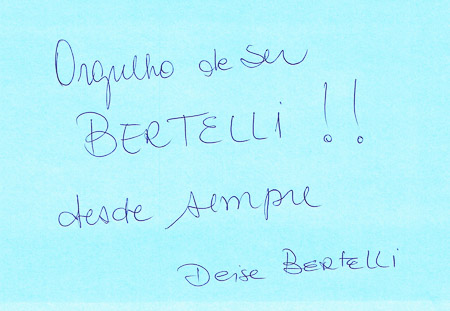 Orgulho de ser
BERTELLI!!
desde sempre
Deise BERTELLI